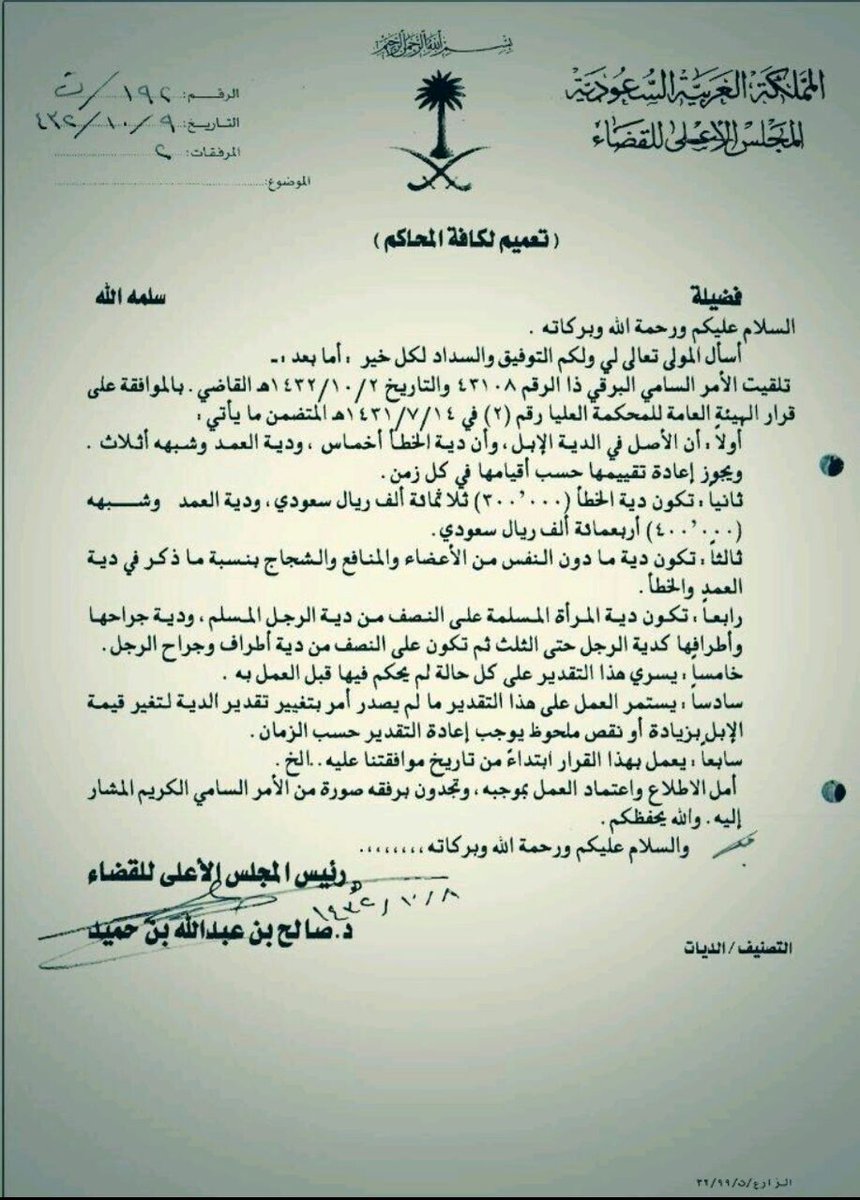 بسم الله الرحمن الرحيم
المملكة العربية السعودية
المجلس الأعلى للقضاء
الرقم: ١٩٢/ت
التاريخ: ٩/١٠/٤٣٢
المرفقات: ٢
الموضوع:
( تعميم لكافة المحاكم )
فضيلة سلمه الله
السلام عليكم ورحمة الله وبركاته .
أسأل المولى تعالى لي ولكم التوفيق والسداد لكل خير ، أما بعد :ـ
تلقيت الأمر السامي البرقي ذا الرقم ٤٣١٠٨ والتاريخ ١٤٣٢/١٠/٢هـ القاضي . بالموافقة على
قرار الهيئة العامة للمحكمة العليا رقم (٢) في ١٤٣١/٧/١٤هـ المتضمن ما يأتي :
أولاً : أن الأصل في الدية الإبل ، وأن دية الخطأ أخماس ، ودية العمد وشبهه أثلاث .
ويجوز إعادة تقييمها حسب أقيامها في كل زمن .
ثانياً : تكون دية الخطأ (٣٠٠٬٠٠٠) ثلاثمائة ألف ريال سعودي ، ودية العمد وشبهه
(٤٠٠٬٠٠٠) أربعمائة ألف ريال سعودي .
ثالثاً : تكون دية ما دون النفس من الأعضاء والمنافع والشجاج بنسبة ما ذكر في دية
العمد والخطأ .
رابعاً : تكون دية المرأة المسلمة على النصف من دية الرجل المسلم ، ودية جراحها
وأطرافها كدية الرجل حتى الثلث ثم تكون على النصف من دية أطراف وجراح الرجل .
خامساً : يسري هذا التقدير على كل حالة لم يحكم فيها قبل العمل به .
سادساً : يستمر العمل على هذا التقدير ما لم يصدر أمر بتغيير تقدير الدية لتغير قيمة
الإبل بزيادة أو نقص ملحوظ يوجب إعادة التقدير حسب الزمان .
سابعاً : يعمل بهذا القرار ابتداءً من تاريخ موافقتنا عليه ..الخ .
أمل الاطلاع واعتماد العمل بموجبه ، وتجدون برفقه صورة من الأمر السامي الكريم المشار
إليه . والله يحفظكم .
والسلام عليكم ورحمة الله وبركاته ،،،،،،،،
رئيس المجلس الأعلى للقضاء
١٤٣٢/١٠/٨
د.صالح بن عبدالله بن حميد
التصنيف / الديات
الزارع/ت/٣٢/٩٩